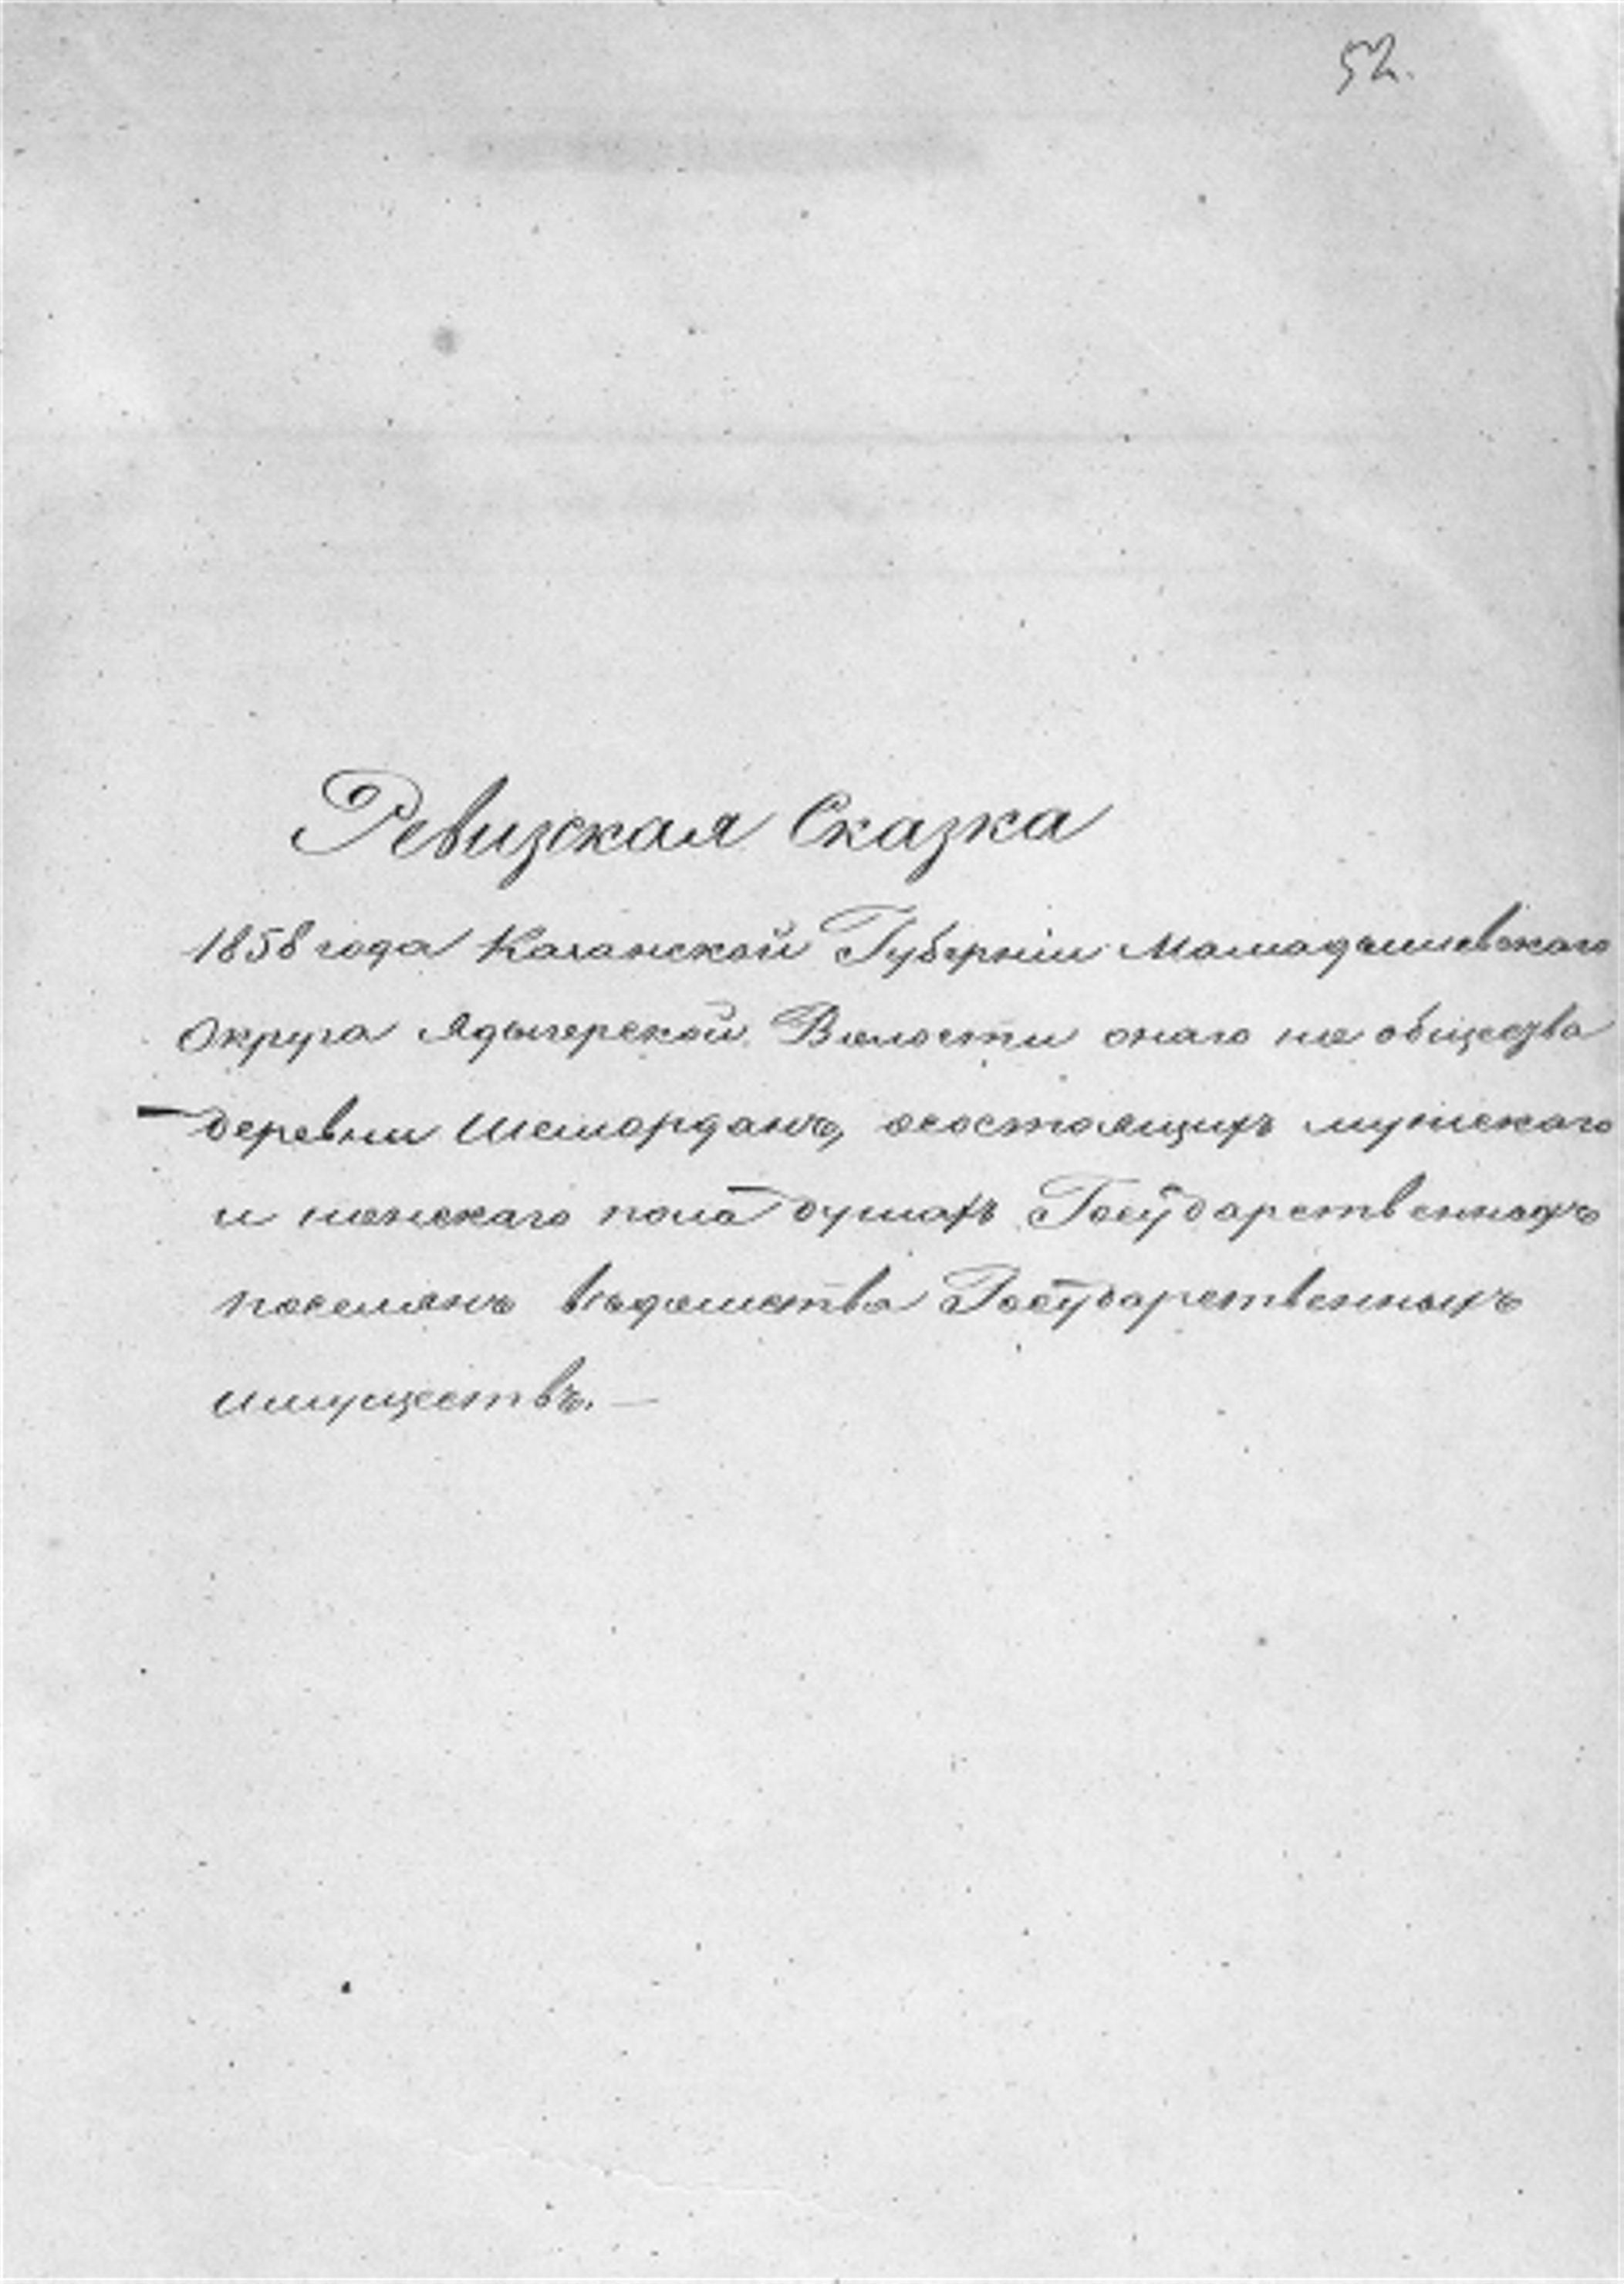 52.
Ревизская Сказка
1858 года Казанской Губерніи Мамадышевскаго
Округа Ядыгерской Волости онаго же общества
деревни Шемордань, осостоящихъ мужескаго
и женскаго пола душахъ Государственныхъ
поселянъ вѣдомства Государственныхъ
имуществъ. —